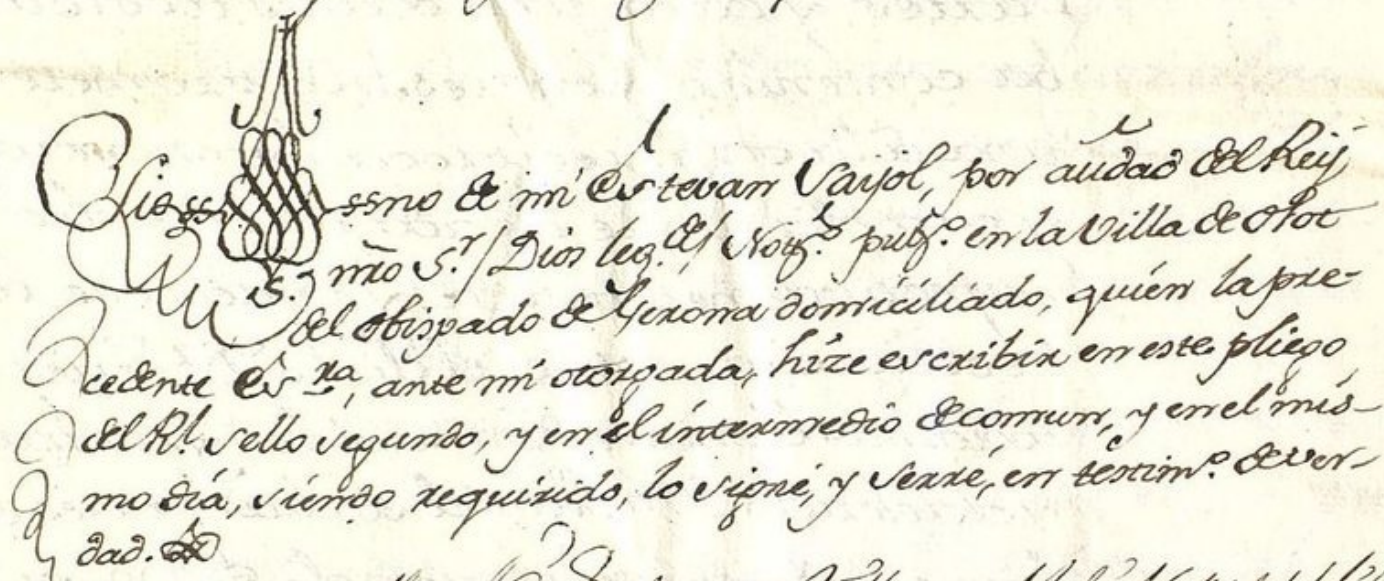 Sig ssno de mi Estevan Sayol, por autdad del Rey
S. nro Sr / Dios leg. de / Noto. pubo. en la Villa de Olot
del obispado de Gerona domiciliado, quién la pre-
cedente Esra, ante mi otorgada, hize escribir en este pliego
del Rl. sello segundo, y en el íntermedio de comun, y en el mis-
mo día, síendo requirido, lo signé, y serré, en téstimo. de ver-
dad.